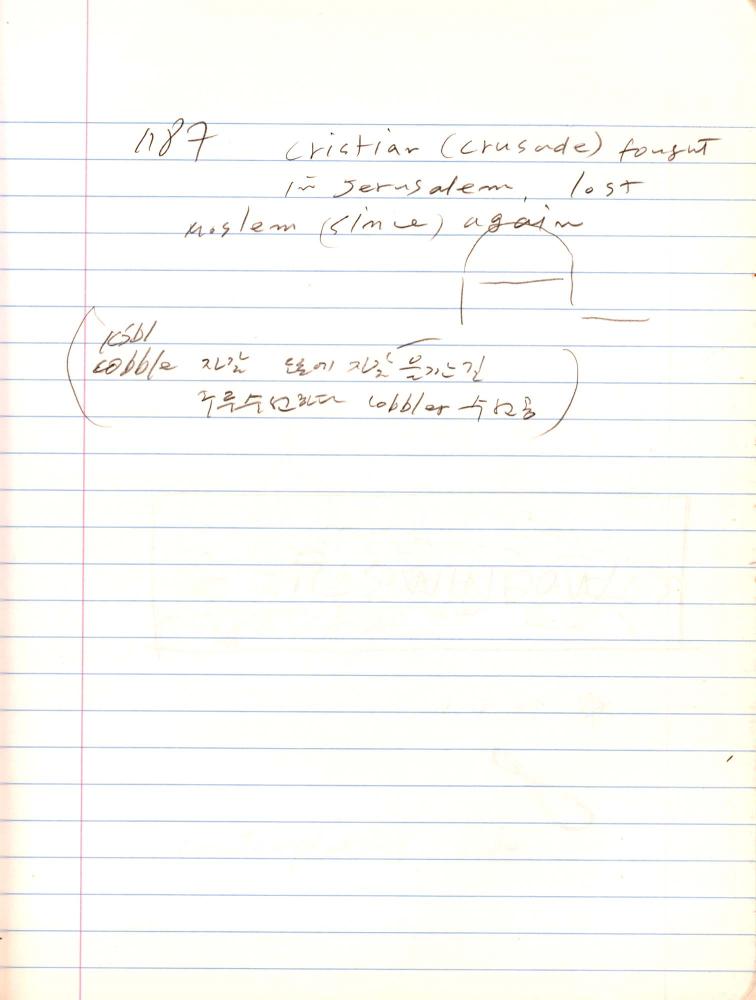 1187 cristian (crusade) fought
in Jerusalem, lost
moslem (since) again
kabl
cobble 자갈 도로에 자갈 을 까는 것
구루수선하다 cobbler 수선공